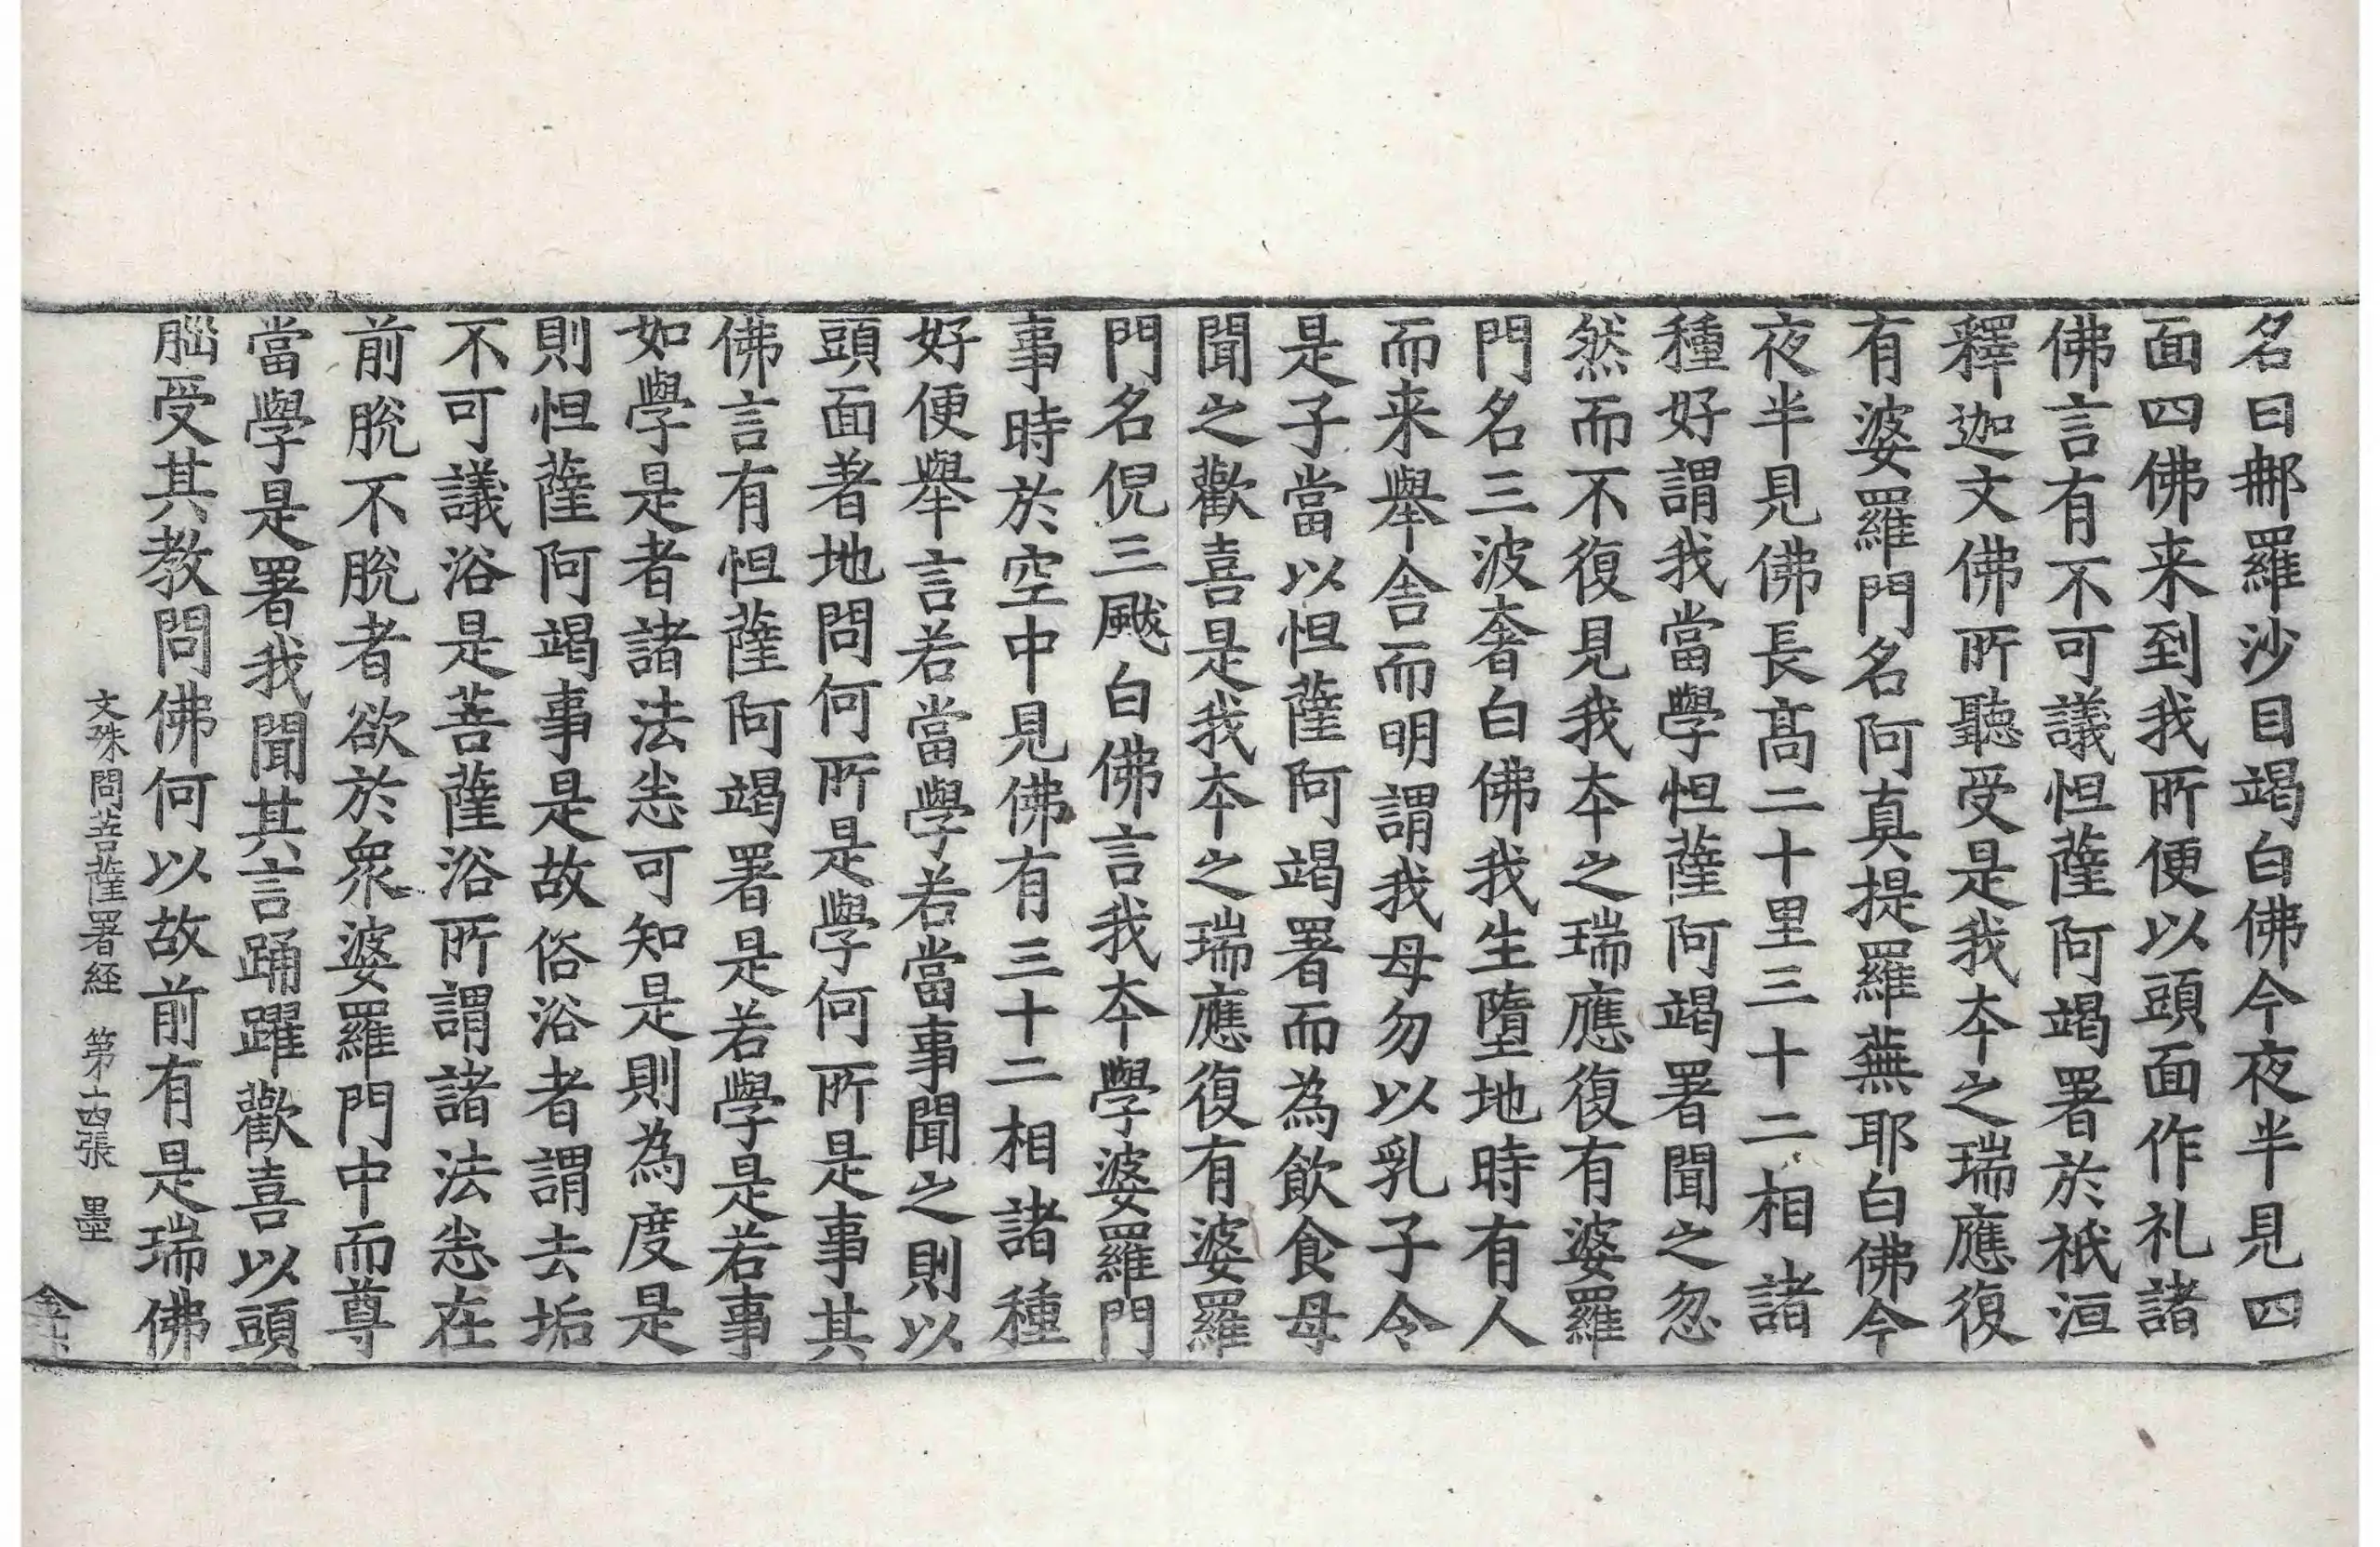 名曰郍羅沙目竭白佛今夜半見四
面四佛来到我所便以頭面作礼諸
佛言有不可議怛薩阿竭署於祇洹
釋迦文佛所聽受是我本之瑞應復
有婆羅門名阿真提羅蕪耶白佛今
夜半見佛長髙二十里三十二相諸
種好謂我當學怛薩阿竭署聞之忽
然而不復見我本之瑞應復有婆羅
門名三波奢白佛我生墮地時有人
而来舉舎而明謂我母勿以乳子令
是子當以怛薩阿竭署而為飲食母
聞之歡喜是我本之瑞應復有婆羅
門名倪三颰白佛言我本學婆羅門
事時於空中見佛有三十二相諸種
好便舉言若當學若當事聞之則以
頭面著地問何所是學何所是事其
佛言有怛薩阿竭署是若學是若事
如學是者諸法悉可知是則為度是
則怛薩阿竭事是故俗浴者謂去垢
不可議浴是菩薩浴所謂諸法悉在
前脫不脫者欲於衆婆羅門中而尊
當學是署我聞其言踊躍歡喜以頭
腦受其教問佛何以故前有是瑞佛
文殊問菩薩署経 第十四張 墨